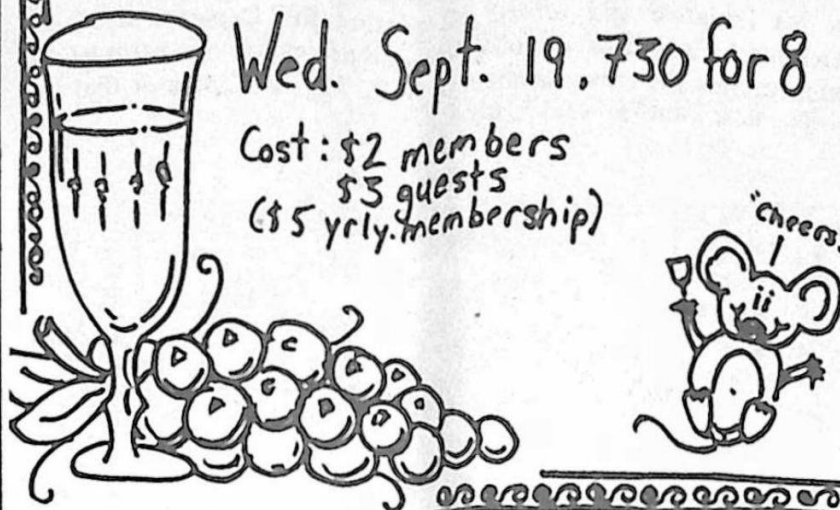 Wed. Sept. 19, 730 for 8
Cost: $2 members
$3 guests
($5 yrly. membership)
"cheers